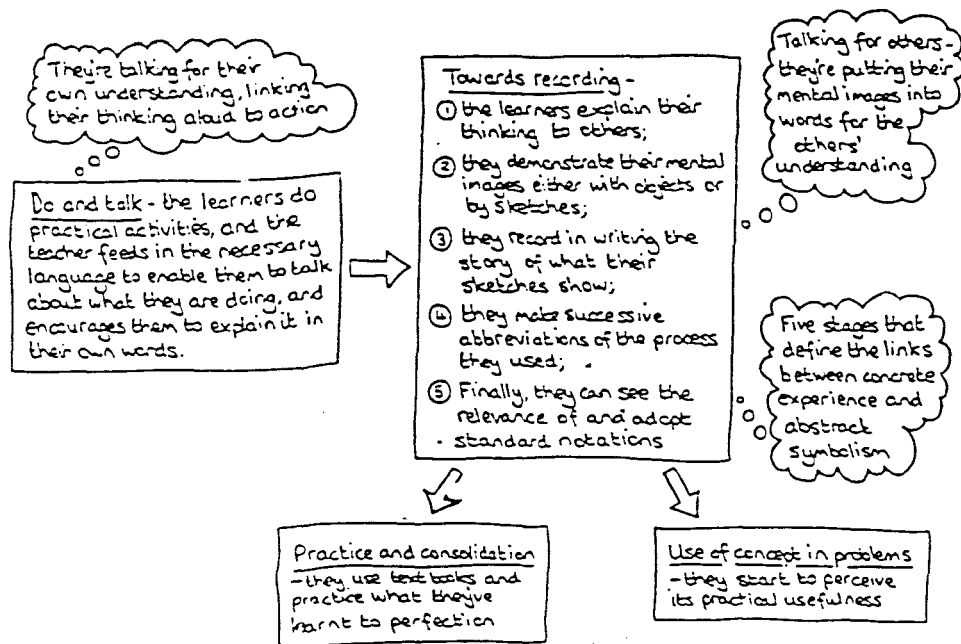 They're talking for their
own understanding, linking
their thinking aloud to action
Do and talk - the learners do
practical activities, and the
teacher feeds in the necessary
language to enable them to talk
about what they are doing, and
encourages them to explain it in
their own words.
Towards recording -
① the learners explain their
thinking to others;
② they demonstrate their mental
images either with objects or
by sketches;
③ they record in writing the
story of what their
sketches show;
④ they make successive
abbreviations of the process
they used;
⑤ Finally, they can see the
relevance of and adopt
standard notations
Talking for others -
they're putting their
mental images into
words for the
others'
understanding
Five stages that
define the links
between concrete
experience and
abstract
symbolism
Practice and consolidation
- they use textbooks and
practice what they've
learnt to perfection
Use of concept in problems
- they start to perceive
its practical usefulness